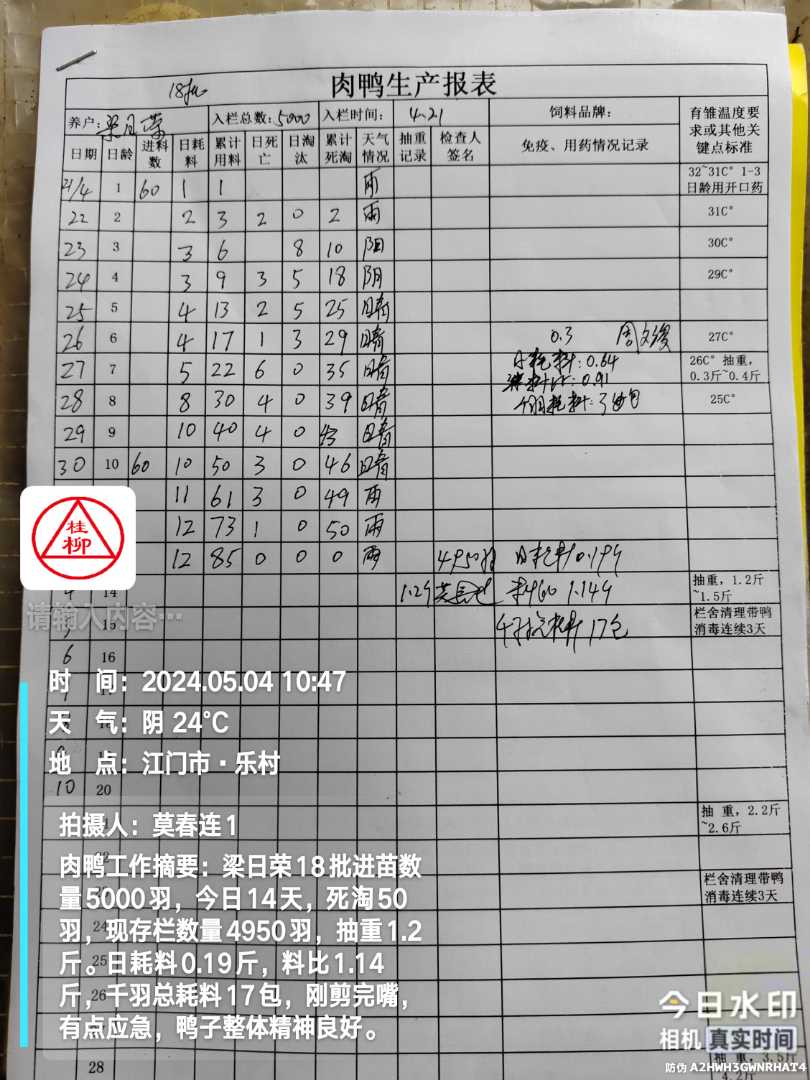 肉鸭生产报表
18批
养户: 梁日荣 入栏总数: 5000 入栏时间: 4.21 饲料品牌: 有雏温度要求或其他关键点标准
日期 日龄 进料数 日耗料 累计用料 日死亡 日淘汰 累计死淘 天气情况 抽重记录 检查人签名 免疫、用药情况记录
21/4 1 60 1 1 雨 32~31C° 1-3日龄用开口药
22 2 2 3 2 0 2 雨 31C°
23 3 3 6 8 10 阳 30C°
24 4 3 9 3 5 18 阴 29C°
25 5 4 13 2 5 25 晴
26 6 4 17 1 3 29 晴 0.3 27C°
27 7 5 22 6 0 35 晴 日耗料:0.64 26C° 抽重,0.3斤~0.4斤
料比:0.91
28 8 8 30 4 0 39 晴 千羽耗料:3 25C°
29 9 10 40 4 0 晴
30 10 60 10 50 3 0 46 晴
11 61 3 0 49 雨
12 73 1 0 50 雨
12 85 0 0 0 雨 4950羽 日耗料0.19斤
14 1.2斤 1.14斤 抽重,1.2斤~1.5斤
15 千羽总耗料17包 栏舍清理带鸭消毒连续3天
6 16
10 20
抽 重,2.2斤~2.6斤
22
栏舍清理带鸭消毒连续3天
24
25
26
28 抽 重,3.5斤
桂柳
请输入内容…
时 间:2024.05.04 10:47
天 气:阴 24℃
地 点:江门市·乐村
拍摄人:莫春连1
肉鸭工作摘要:梁日荣18批进苗数
量5000羽,今日14天,死淘50
羽,现存栏数量4950羽,抽重1.2
斤。日耗料0.19斤,料比1.14
斤,千羽总耗料17包,刚剪完嘴,
有点应急,鸭子整体精神良好。
今日水印
相机 真实时间
防伪 A2HWH3GWNRHAT4